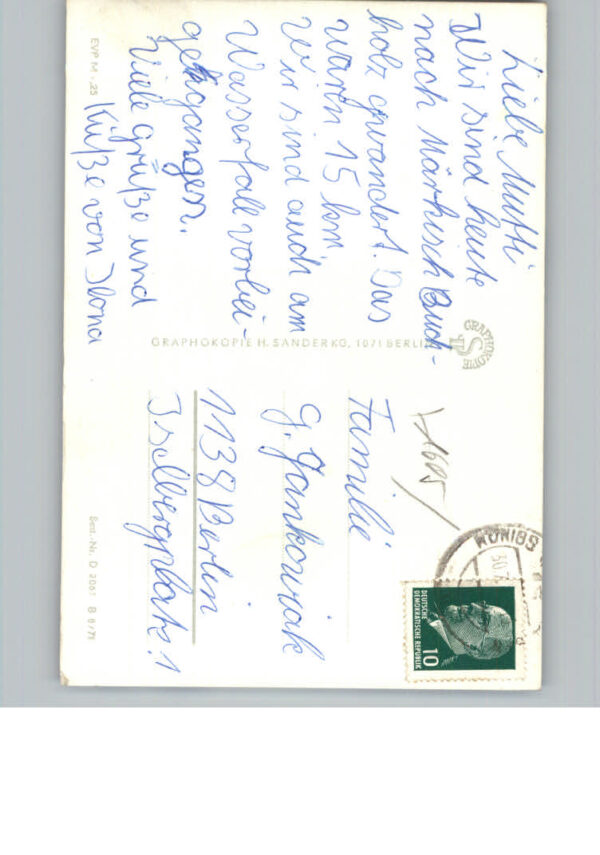 Liebe Mutti
Wir sind heute
nach Märkisch Buch-
holz gewandert. Das
waren 15 km.
Wir sind auch am
Wasserfall vorbei-
gegangen.
Viele Grüße und
Küße von Ilona
EVP M -,25
GRAPHOKOPIE H. SANDER KG, 1071 BERLIN
GRAPHOKOPIE
HS
Familie
G. Jankowiak
1138 Berlin
Iselbergplatz 1
Best.-Nr. D 2061 B 8/71
DEUTSCHE
DEMOKRATISCHE REPUBLIK
10